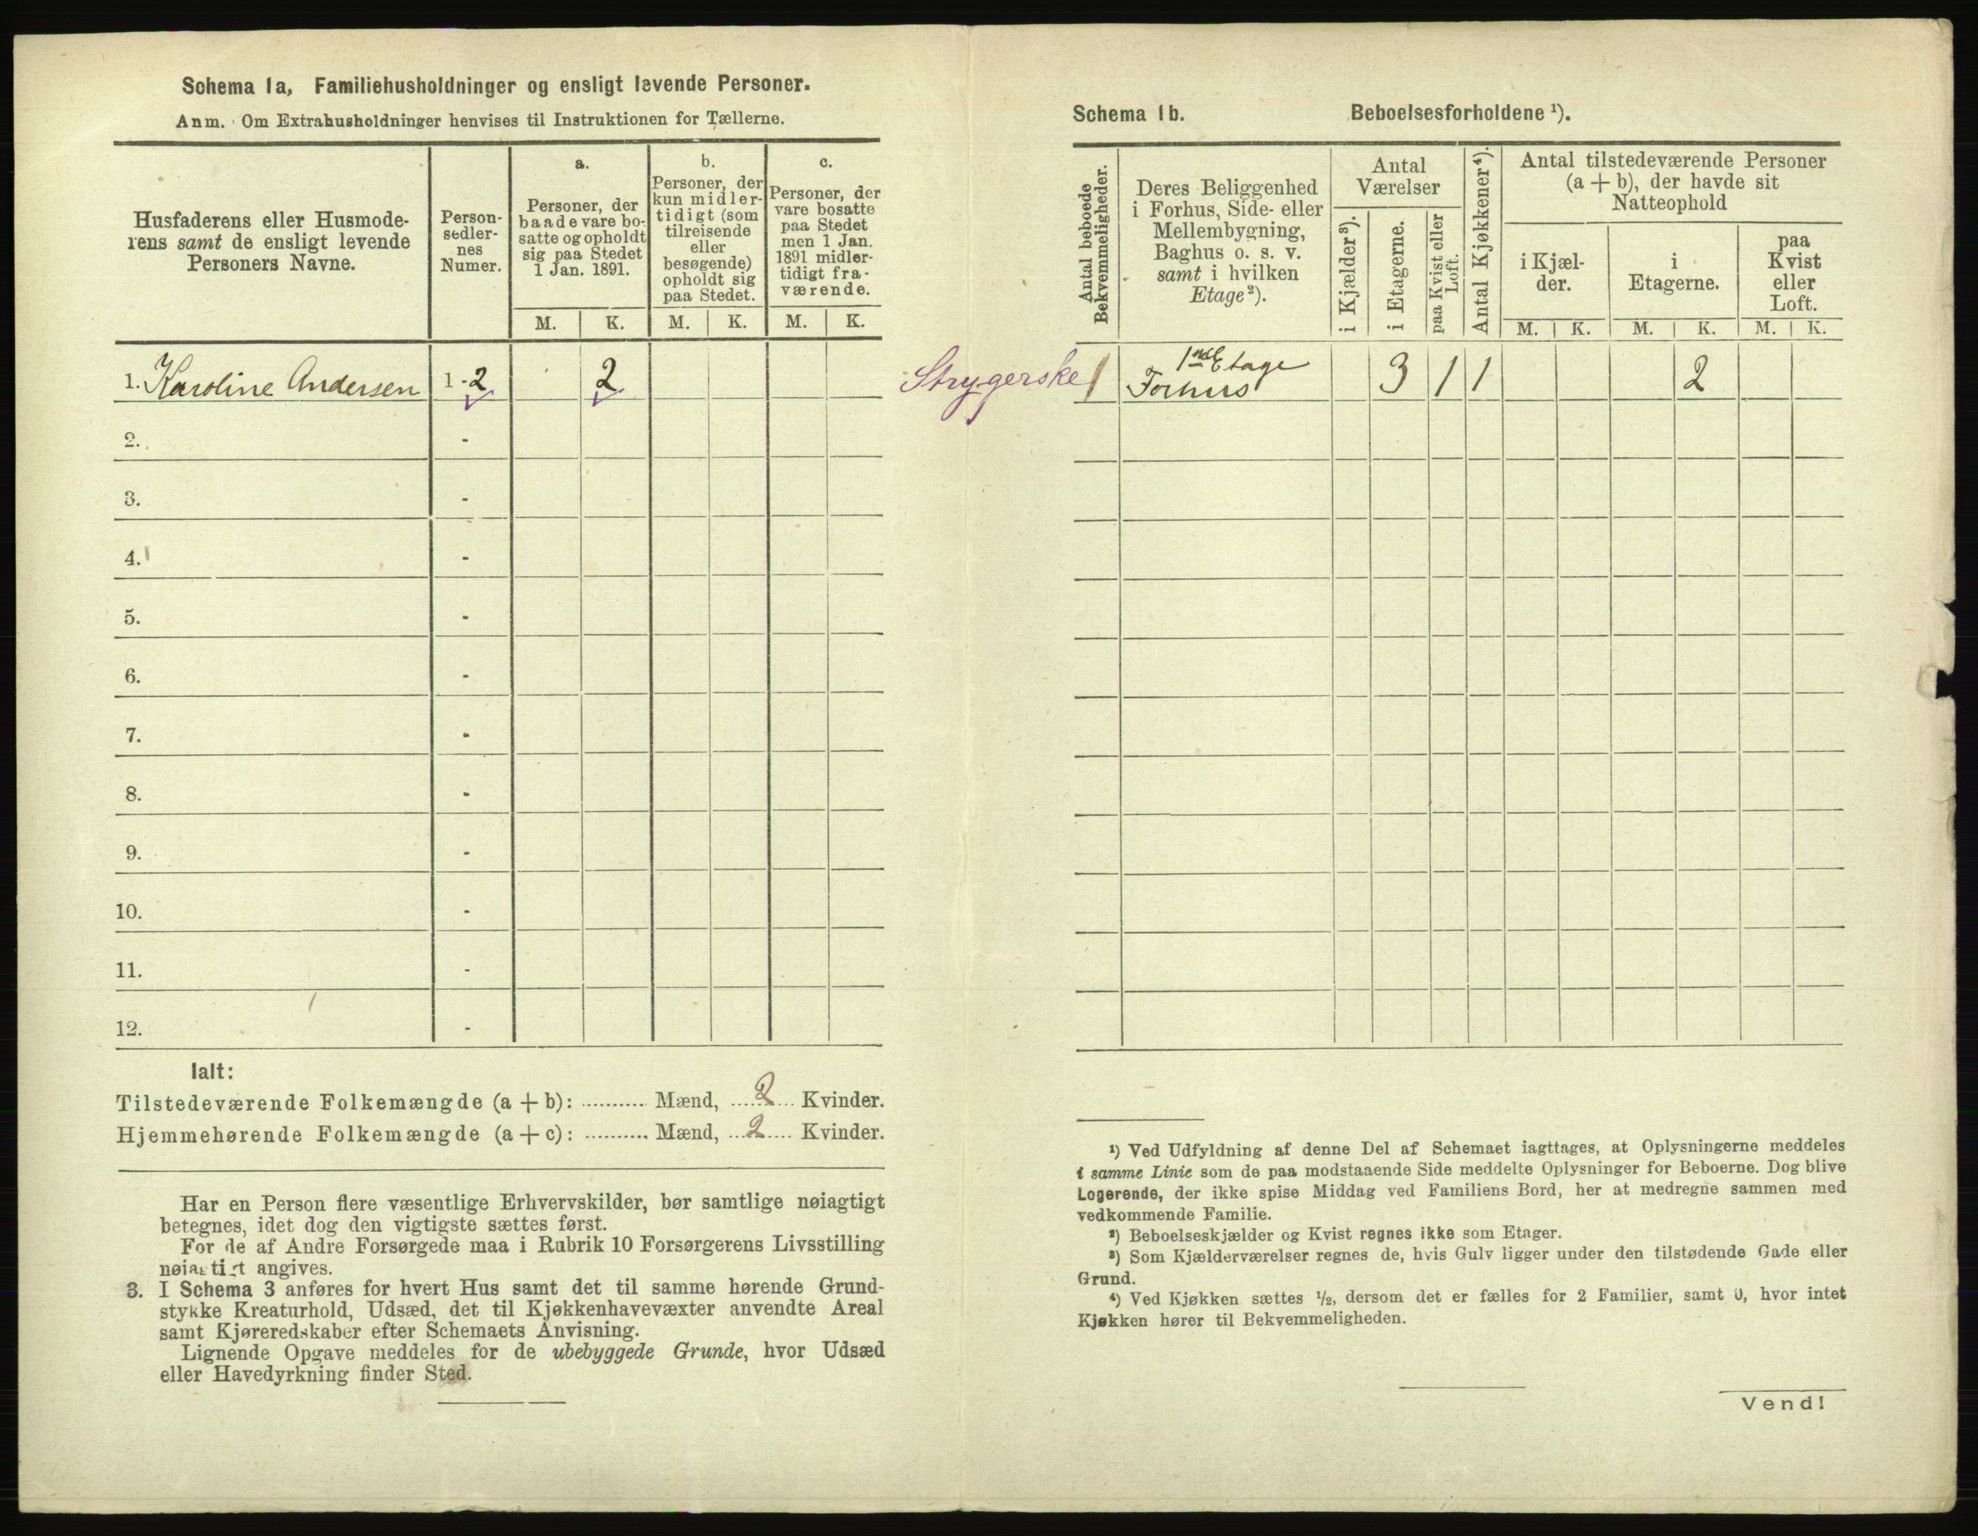 Schema 1a, Familiehusholdninger og ensligt levende Personer.
Anm. Om Extrahusholdninger henvises til Instruktionen for Tællerne.
Husfaderens eller Husmode-
rens samt de ensligt levende
Personers Navne.
Person-
sedler-
nes
Numer.
a.
Personer, der
baade vare bo-
satte og opholdt
sig paa Stedet
1 Jan. 1891.
b.
Personer, der
kun midler-
tidigt (som
tilreisende
eller
besøgende)
opholdt sig
paa Stedet.
c.
Personer, der
vare bosatte
paa Stedet
men 1 Jan.
1891 midler-
tidigt fra-
værende.
M. K. M. K. M. K.
1. Karoline Andersen 1 - 2 2
2. -
3. -
4. -
5. -
6. -
7. -
8. -
9. -
10. -
11. -
12. -
Ialt:
Tilstedeværende Folkemængde (a + b): ........... Mænd, 2 Kvinder.
Hjemmehørende Folkemængde (a + c): ........... Mænd, 2 Kvinder.
Har en Person flere væsentlige Erhvervskilder, bør samtlige nøiagtigt
betegnes, idet dog den vigtigste sættes først.
For de af Andre Forsørgede maa i Rubrik 10 Forsørgerens Livsstilling
nøiagtigt angives.
3. I Schema 3 anføres for hvert Hus samt det til samme hørende Grund-
stykke Kreaturhold, Udsæd, det til Kjøkkenhavevæxter anvendte Areal
samt Kjøreredskaber efter Schemaets Anvisning.
Lignende Opgave meddeles for de ubebyggede Grunde, hvor Udsæd
eller Havedyrkning finder Sted.
Schema 1b. Beboelsesforholdene ¹).
Antal beboede
Bekvemmeligheder.
Deres Beliggenhed
i Forhus, Side- eller
Mellembygning,
Baghus o. s. v.
samt i hvilken
Etage²).
Antal
Værelser
i Kjælder³).
i Etagerne.
paa Kvist eller
Loft.
Antal Kjøkkener⁴).
Antal tilstedeværende Personer
(a + b), der havde sit
Natteophold
i Kjæl-
der.
i
Etagerne.
paa
Kvist
eller
Loft.
M. K. M. K. M. K.
Strygerske 1 1ste Etage
Forhus 3 1 1 2
¹) Ved Udfyldning af denne Del af Schemaet iagttages, at Oplysningerne meddeles
i samme Linie som de paa modstaaende Side meddelte Oplysninger for Beboerne. Dog blive
Logerende, der ikke spise Middag ved Familiens Bord, her at medregne sammen med
vedkommende Familie.
²) Beboelseskjælder og Kvist regnes ikke som Etager.
³) Som Kjælderværelser regnes de, hvis Gulv ligger under den tilstødende Gade eller
Grund.
⁴) Ved Kjøkken sættes ½, dersom det er fælles for 2 Familier, samt 0, hvor intet
Kjøkken hører til Bekvemmeligheden.
Vend!